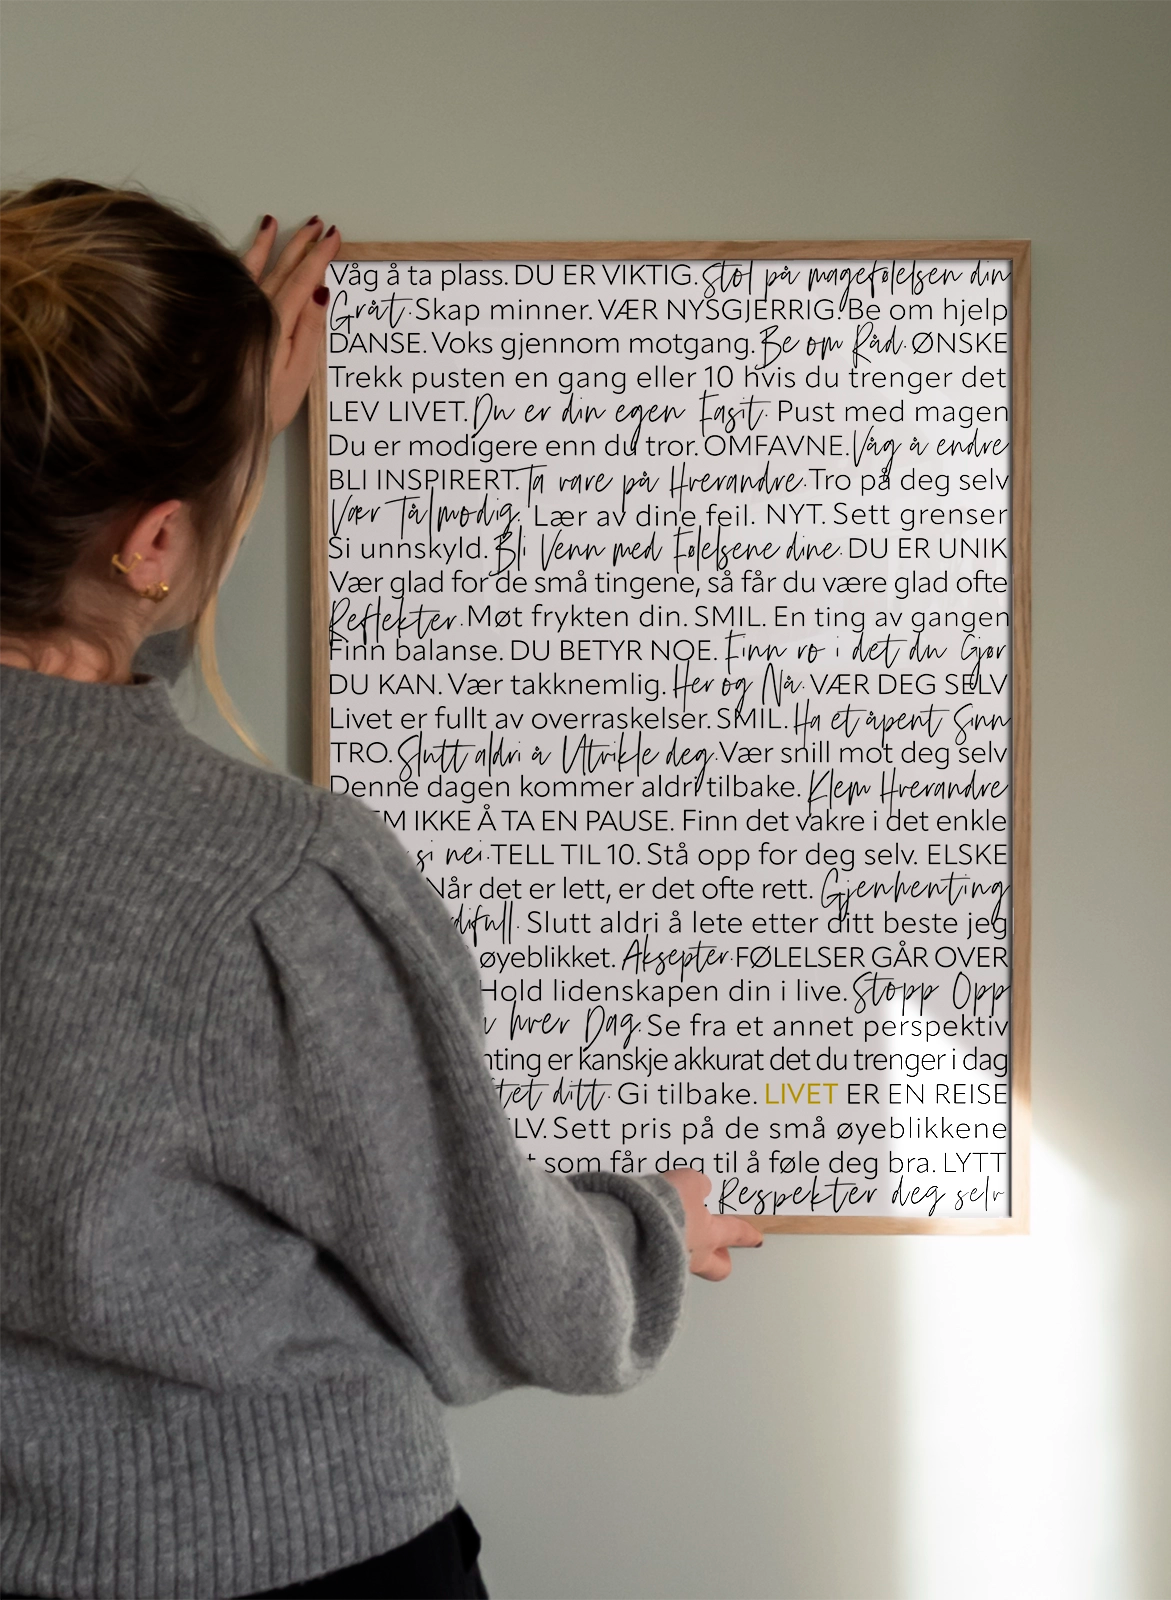 Våg å ta plass. DU ER VIKTIG. Stol på magefølelsen din
Gråt. Skap minner. VÆR NYSGJERRIG. Be om hjelp
DANSE. Voks gjennom motgang. Be om Råd. ØNSKE
Trekk pusten en gang eller 10 hvis du trenger det
LEV LIVET. Du er din egen Fasit. Pust med magen
Du er modigere enn du tror. OMFAVNE. Våg å endre
BLI INSPIRERT. Ta vare på Hverandre. Tro på deg selv
Vær Tålmodig. Lær av dine feil. NYT. Sett grenser
Si unnskyld. Bli Venn med Følelsene dine. DU ER UNIK
Vær glad for de små tingene, så får du være glad ofte
Reflekter. Møt frykten din. SMIL. En ting av gangen
Finn balanse. DU BETYR NOE. Finn ro i det du Gjør
DU KAN. Vær takknemlig. Her og Nå. VÆR DEG SELV
Livet er fullt av overraskelser. SMIL. Ha et åpent Sinn
TRO. Slutt aldri å Utvikle deg. Vær snill mot deg selv
Denne dagen kommer aldri tilbake. Klem Hverandre
EM IKKE Å TA EN PAUSE. Finn det vakre i det enkle
si nei. TELL TIL 10. Stå opp for deg selv. ELSKE
Når det er lett, er det ofte rett. Gjenhenting
difull. Slutt aldri å lete etter ditt beste jeg
øyeblikket. Aksepter. FØLELSER GÅR OVER
Hold lidenskapen din i live. Stopp Opp
hver Dag. Se fra et annet perspektiv
nting er kanskje akkurat det du trenger i dag
tet ditt. Gi tilbake. LIVET ER EN REISE
LV. Sett pris på de små øyeblikkene
som får deg til å føle deg bra. LYTT
Respekter deg selv